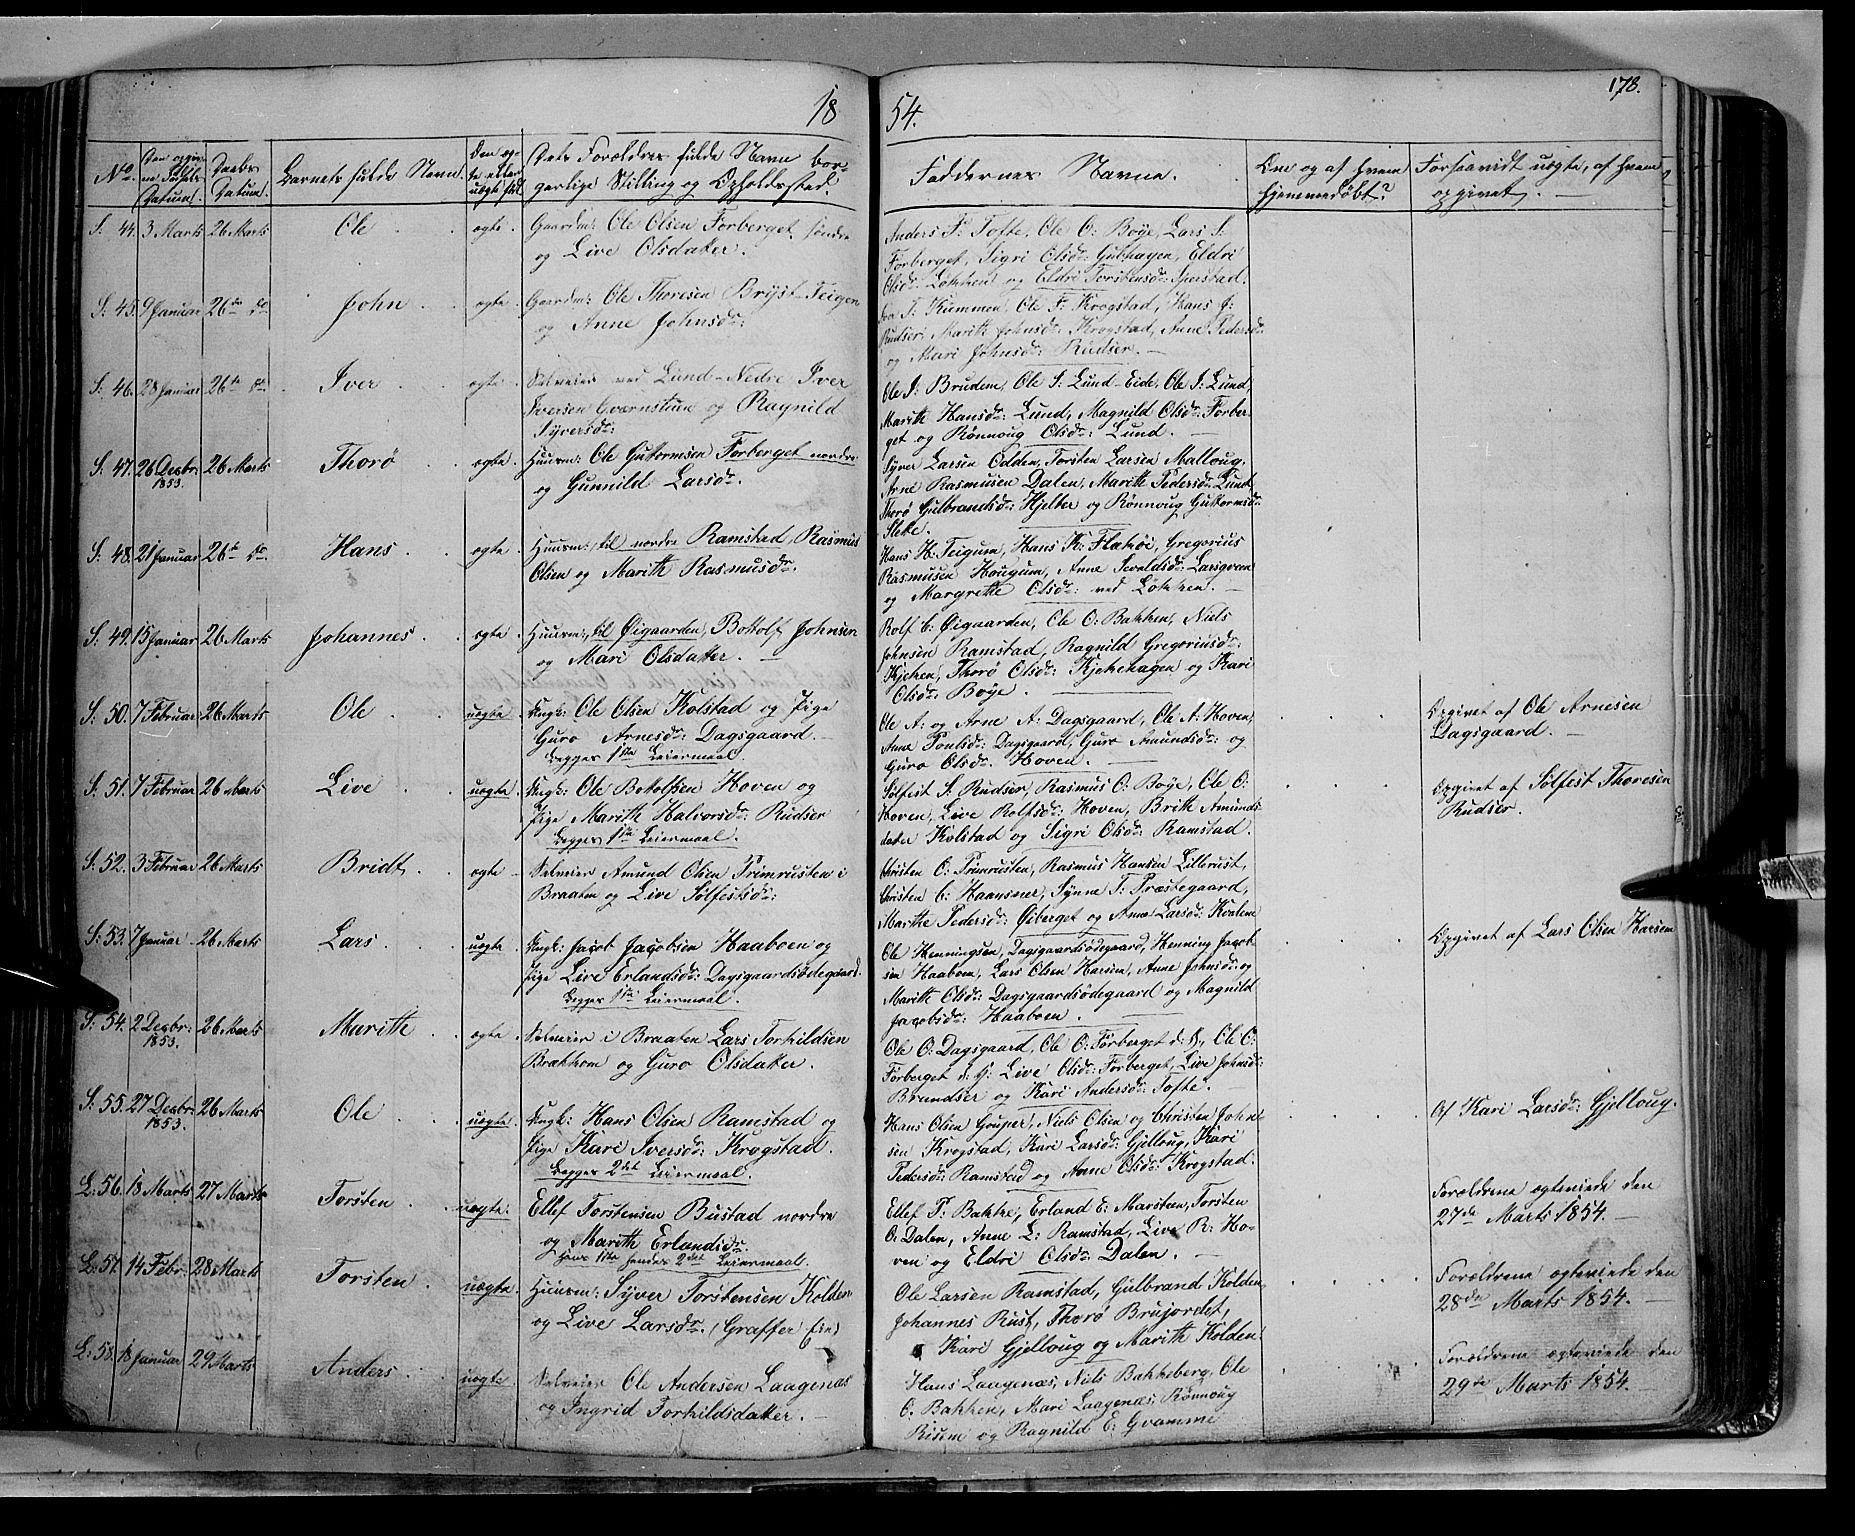 18
54.
178.
No. Den opgivne Fødsels Datum. Daabs Datum. Barnets fulde Navn. Den ægte eller uægte født Dets Forældres fulde Navn borgerlige Stilling og Opholdssted
Faddernes Navne.
Om og af hvem hjemmedøbt?
Forsaavidt uægte, af hvem opgivet.
S: 44. 3 Marts 26 Marts Ole ægte. Gaardm: Ole Olsen Forberget søndre
og Live Olsdatter.
Anders P: Tofte, Ole O: Bøye, Lars S.
Forberget, Sigri Olsdr: Gubhagen, Eldri
Olsdr: Løkken og Eldri Torstensdr: Sperstad.
S: 45. 9 Januar 26de do John ægte Gaardm: Ole Thoresen Bryst-Teigen
og Anne Johnsdr:
T. Kummen, Ole F: Krogstad, Hans J:
Rudser, Marith Johnsdr: Krogstad, Anne Pedersdr:
og Mari Johnsdr: Rudser.
S: 46. 28 Januar 26de do Iver ægte. Selveier ved Lund-Nedre Iver
Iversen Gværnstuen og Ragnild
Syversdr:
Ole I: Brudem, Ole S: Lund-Eide, Ole I: Lund,
Marith Hansdr: Lund, Magnild Olsdr: Forber-
get og Rønnoug Olsdr: Lund.
S: 47. 26 Decbr: 1853. 26 Marts Thorø ægte. Huusm: Ole Gutormsen Forberget nordre
og Gunnild Larsdr.
Syver Larsen Odden, Torsten Larsen Malloug,
Arne Rasmusen Dalen, Marith Pedersdr: Lund
Thorø Gulbrandsdr: Hjelter og Rønnoug Guttormsdr:
Sleke.
S: 48. 21 Januar 26de do Hans ægte Huusm: til nordre Ramstad, Rasmus
Olsen og Marith Rasmusdr.
Hans H: Teigum, Hans K: Flatøi, Gregorius
Rasmusen Hougum, Anne Sevaldsdr: Larsgveen
og Margrethe Olsdr: ved Løkken.
S: 49. 15 Januar 26 Marts Johannes ægte Huusm: til Øigaarden, Bottolf Johnsen
og Mari Olsdatter.
Rolf C: Øigaarden, Ole O: Bakken, Niels
Johnsen Ramstad, Ragnild Gregoriusdr:
Kjeken, Thorø Olsdr: Kjekehagen og Kari
Olsdr: Bøye.
S: 50. 7 Februar 26 Marts Ole uægte. Ungk: Ole Olsen Kolstad og Pige
Guro Arnesdr: Dagsgaard.
Begges 1ste Leiermaal.
Ole A: og Arne A: Dagsgaard, Ole A: Hoven,
Anne Poulsdr: Dagsgaard, Guro Amundsdr: og
Guro Olsdr: Hoven.
Opgivet af Ole Arnesen
Dagsgaard.
S: 51. 7 Februar 26 Marts Live uægte. Ungk: Ole Bottolfsen Hoven og
Pige Marith Halvorsdr: Rudser
Begges 1ste Leiermaal.
Sølfest S. Rudser, Rasmus O: Bøye, Ole O:
Hoven, Live Rolfsdr: Hoven, Brith Amunds-
dater Kolstad og Sigri Olsdr: Ramstad.
Opgivet af Sølfest Thoresen
Rudser.
S: 52. 3 Februar 26 Marts Bridt ægte Selveier Amund Olsen Primrusten i
Braaten og Live Sølfestsdr:
Christen O: Primrusten, Rasmus Hansen Lillerust,
Christen C: Haansner, Synne T: Præstegaard,
Marithe Pedersdr: Øiberget og Anne Larsdr: Kvalene
S: 53. 7 Januar 26 Marts Lars uægte Ungk: Jacob Jacobsen Haaboen og
Pige Live Erlandsdr: Dagsgaardsødegaard.
Begges 1ste Leiermaal.
Ole Henningsen, Dagsgaardsødegaard, Henning Jacob-
sen Haaboen, Lars Olsen Harsem, Anne Johnsdr: og
Marith Olsdr: Dagsgaardsødegaard og Magnild
Jacobsdr: Haaboen.
Opgivet af Lars Olsen Harsem
S: 54. 2 Decbr: 1853. 26 Marts Marith ægte Selveier i Braaten Lars Torkildsen
Brækkom og Guro Olsdatter.
Ole O: Dagsgaard, Ole O: Forberget d: Æ, Ole O:
Forberget d: Y: Live Olsdr: Forberget, Live Johnsdr:
Brundser og Kari Andersdr: Tofte.
S: 55. 27 Decbr: 1853. 26 Marts Ole uægte. Ungk: Hans Olsen Ramstad og
Pige Kari Iversdr: Krogstad.
Begges 2det Leiermaal.
Hans Olsen Gruper, Niels Olsen og Christen John-
sen Krogstad, Kari Larsdr: Gjelloug, Kari
Pedersdr: Ramstad og Anne Olsdr: Krogstad.
Af Kari Larsdr: Gjelloug.
L: 56. 18 Marts 27 Marts Torsten uægte. Ellef Torstensen Bustad nordre
og Marith Erlandsdr.
Hans 1ste hendes 2det Leiermaal.
Ellef P: Bakke, Erland E: Marsteen, Torsten
O. Dalen, Anne L: Ramstad, Live R: Ho-
ven og Eldri Olsdr: Dalen.
Forældrene ægteviede den
27de Marts 1854.
L: 57. 14 Febr: 28 Marts Torsten uægte Huusm: Syver Torstensen Kolden
og Live Larsdr. (Graffer Eie)
Ole Larsen Ramstad, Gulbrand Kolden
Johannes Rust, Thorø Brujordet,
Kari Gjelloug og Marith Kolden.
Forældrene ægteviede den
28de Marts 1854.
L: 58. 18 Januar 29 Marts Anders uægte. Selveier Ole Andersen Laagenæs
og Ingrid Torkildsdatter.
Hans Laagenæs, Niels Bakkeberg, Ole
O. Bakken, Mari Laagenæs, Rønnoug
Risem og Ragnild E: Gramme
Forældrene ægteviede den
29de Marts 1854.